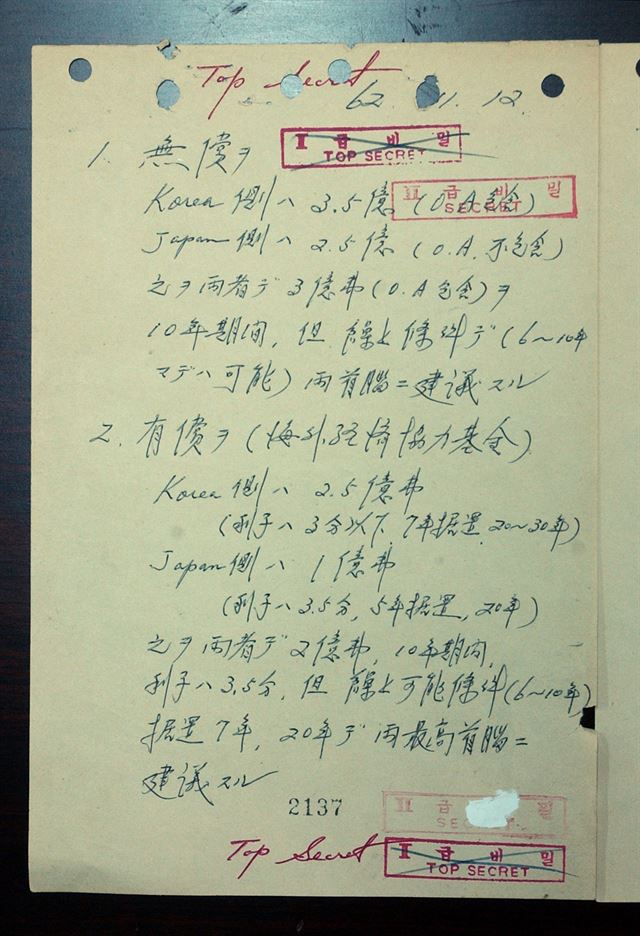 Top Secret
62. 11. 12.
I 급 비 밀
TOP SECRET
1. 無償ヲ
II 급 비 밀
SECRET
Korea 側ハ 3.5億 (O.A 包含)
Japan 側ハ 2.5億 (O.A. 不包含)
之ヲ両者デ 3億弗 (O.A 包含) ヲ
10年期間, 但 繰上條件デ (6~10年
マデハ可能) 両首腦ニ建議スル
2. 有償ヲ (海外経済協力基金)
Korea 側ハ 2.5億弗
(利子ハ 3分以下, 7年据置, 20~30年)
Japan 側ハ 1億弗
(利子ハ 3.5分, 5年据置, 20年)
之ヲ両者デ 2億弗, 10年期間,
利子ハ 3.5分, 但 繰上可能條件 (6~10年)
据置 7年, 20年デ 両最高首腦ニ
建議スル
2137
II 급 밀
SEC
Top Secret
I 급 비 밀
TOP SECRET